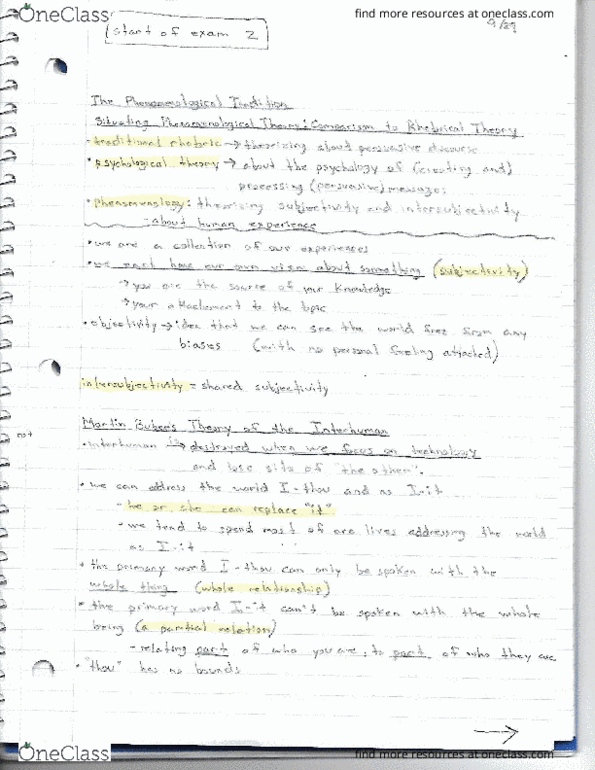 OneClass
find more resources at oneclass.com
start of exam 2
9/29
The Phenomenological Tradition
Situating Phenomenological Theory: Comparison to Rhetorical Theory
- traditional rhetoric → theorizing about persuasive discourse
• psychological theory → about the psychology of (creating and)
processing (persuasive) messages
• phenomenology: theorizing subjectivity and intersubjectivity
- about human experience
• we are a collection of our experiences
• we each have our own view about something (subjectivity)
→ you are the source of your knowledge
→ your attachment to the topic
• objectivity → idea that we can see the world free from any
biases (with no personal feeling attached)
intersubjectivity = shared subjectivity
Martin Buber's Theory of the Interhuman
not
• interhuman is → destroyed when we focus on technology
and lose site of "the other".
• we can address the world I-thou and as I-it
- he or she can replace "it"
- we tend to spend most of are lives addressing the world
as I-it
• the primary word I-thou can only be spoken with the
whole thing (whole relationship)
• the primary word I-it can't be spoken with the whole
being (a partial relation)
- relating part of who you are, to part of who they are
• "thou" has no bounds
→
OneClass
find more resources at oneclass.com